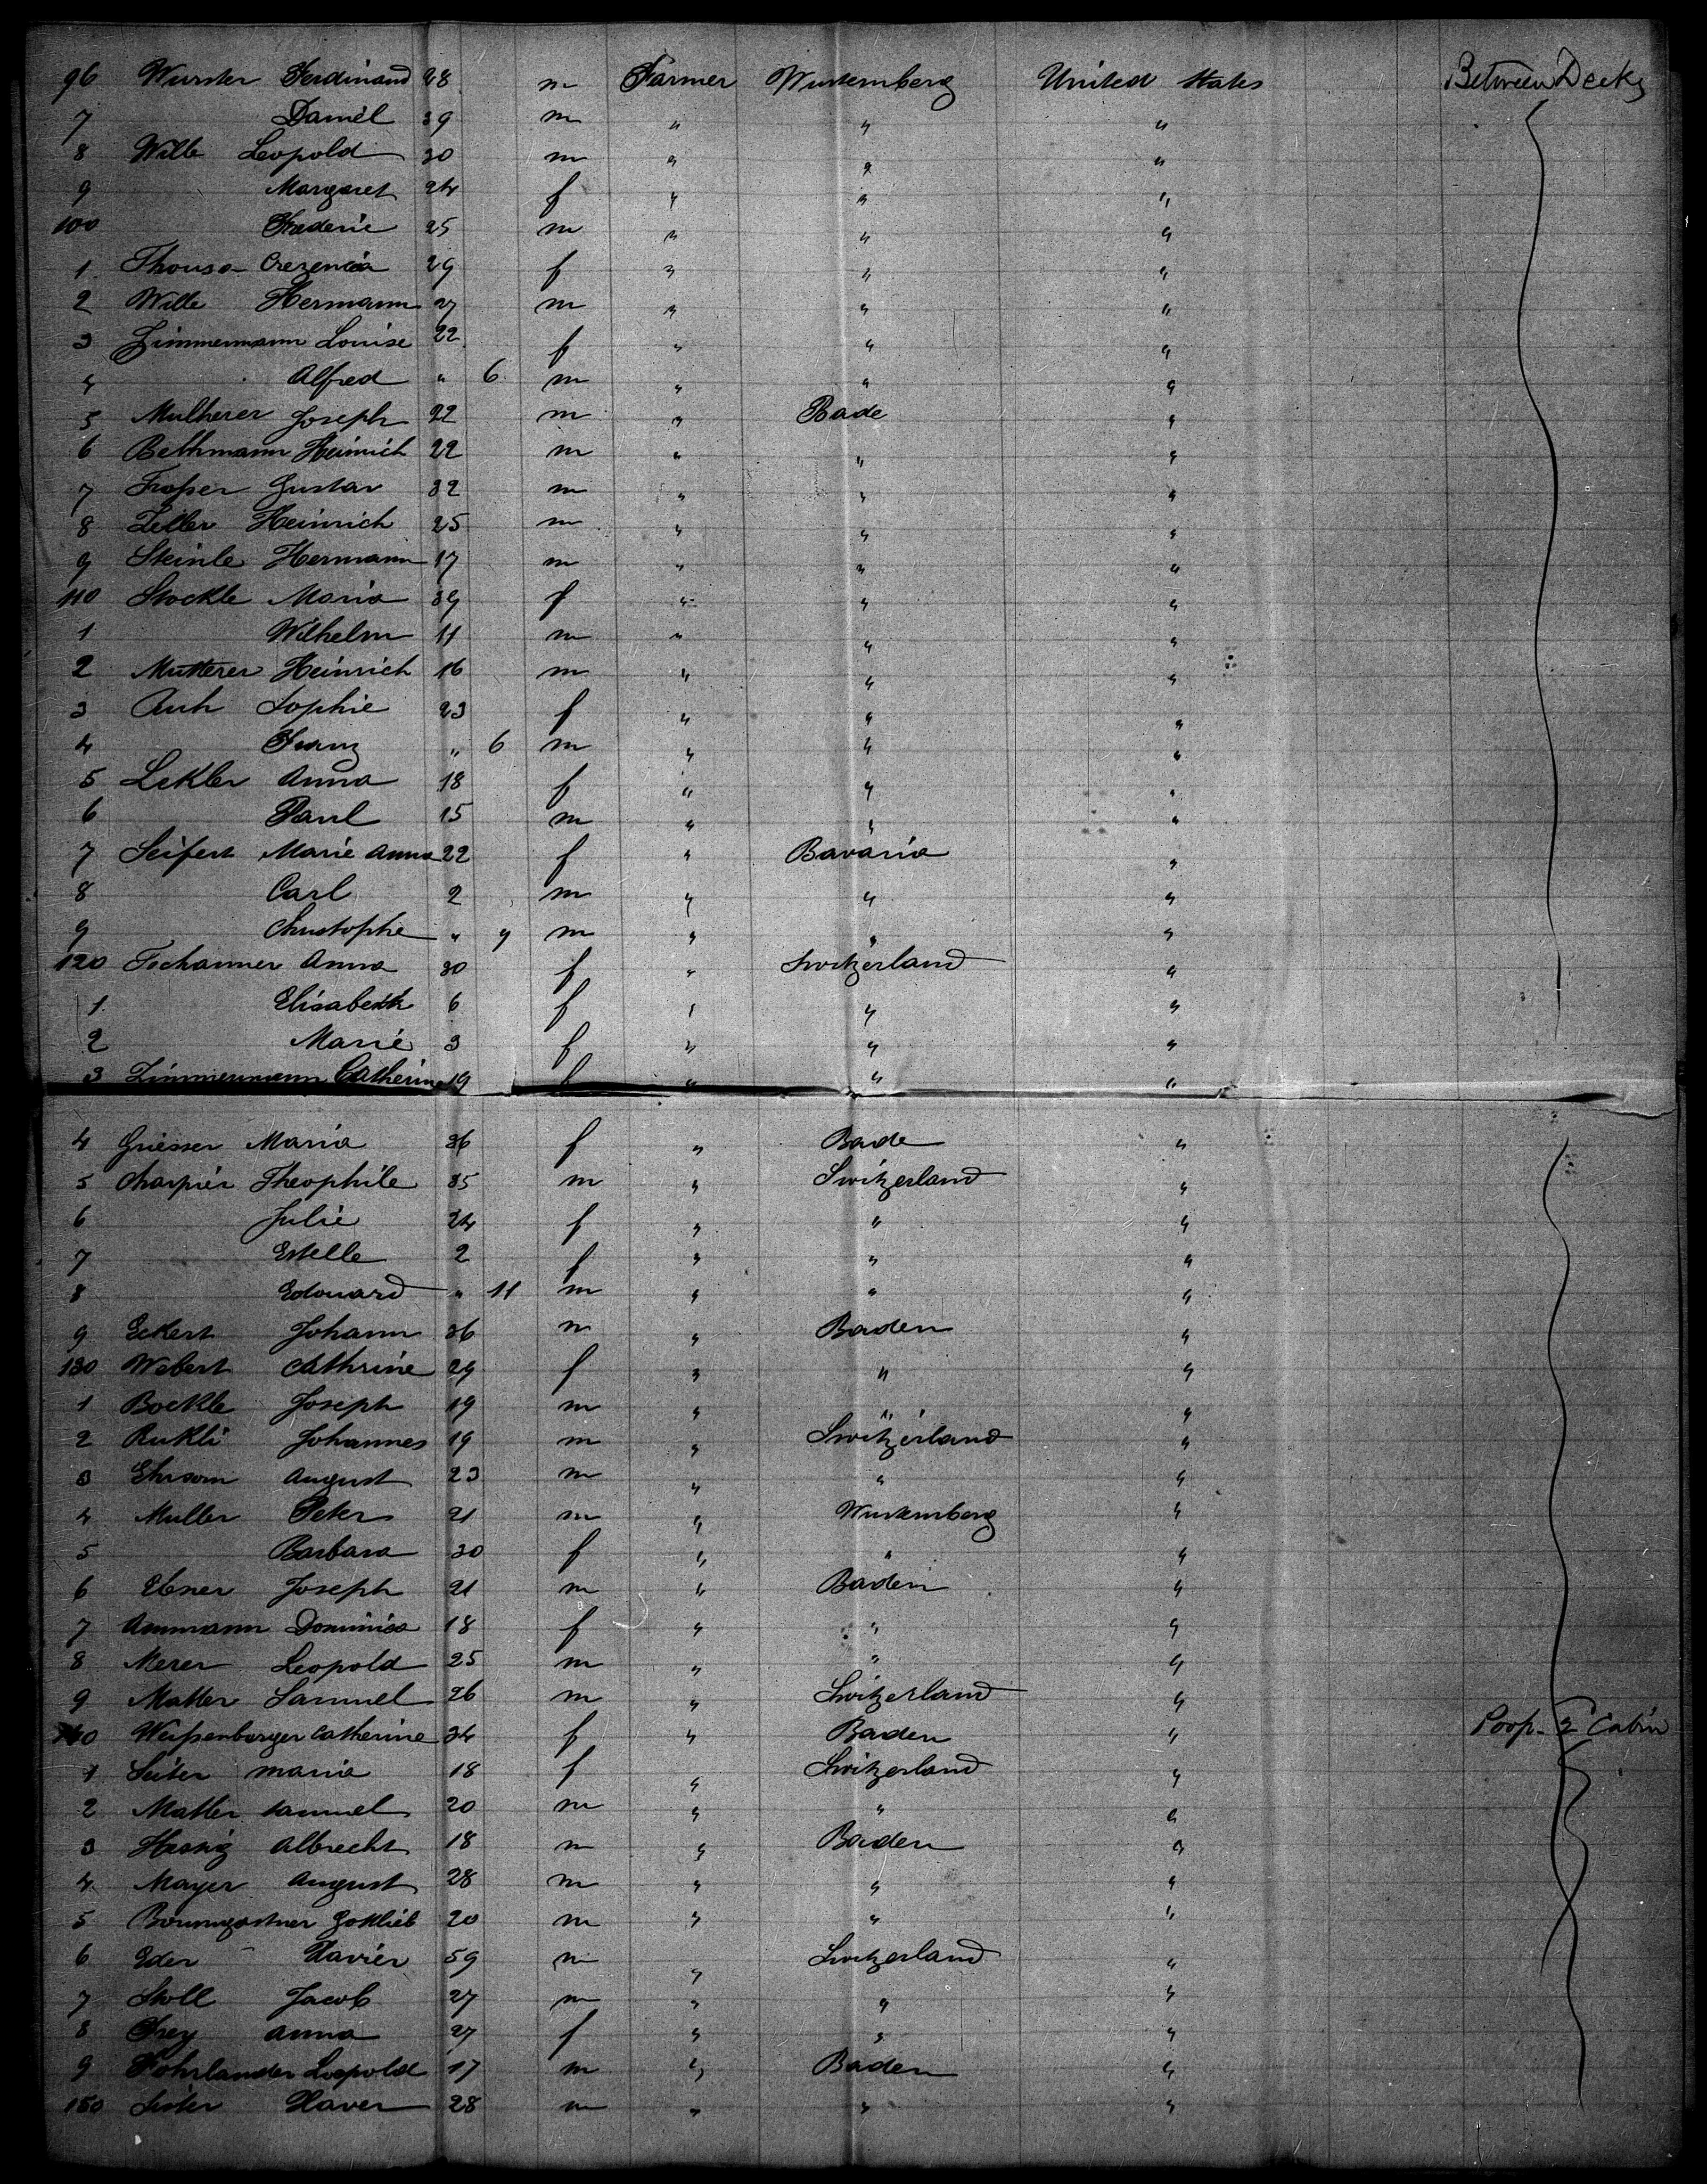 96 Wurster Ferdinand 28 m Farmer Wurtemberg United States Between Decks
7 Daniel 39 m " " "
8 Wille Leopold 30 m " " "
9 Margaret 24 f " " "
100 Frederic 25 m " " "
1 Crezencia 29 f " " "
2 Wille Hermann 27 m " " "
3 Zimmermann Louise 22 f " " "
4 Alfred " 6 m " " "
5 Mulherer Joseph 22 m " Bade "
6 Bethmann Heinrich 22 m " " "
7 Gustav 32 m " " "
8 Zeller Heinrich 25 m " " "
9 Steinle Hermann 17 m " " "
110 Stockle Maria 39 f " " "
1 Wilhelm 11 m " " "
2 Mutterer Heinrich 16 m " " "
3 Sophie 23 f " " "
4 Franz " 6 m " " "
5 Lekler Anna 18 f " " "
6 Paul 15 m " " "
7 Seifert Marie Anna 22 f " Bavaria "
8 Carl 2 m " " "
9 Christophe " 9 m " " "
120 Tschanner Anna 30 f " Switzerland "
1 Elisabeth 6 f " " "
2 Marie 3 f " " "
3 Zimmermann Catherine 19 f " " "
4 Griesser Maria 36 f " Bade "
5 Charpier Theophile 35 m " Switzerland "
6 Julie 24 f " " "
7 Estelle 2 f " " "
8 Edouard " 11 m " " "
9 Eckert Johann 36 m " Baden "
130 Webert Cathrine 29 f " " "
1 Bockle Joseph 19 m " " "
2 Rukli Johannes 19 m " Switzerland "
3 Ehrsam August 23 m " " "
4 Muller Peter 21 m " Wurtemberg "
5 Barbara 30 f " " "
6 Ebner Joseph 21 m " Baden "
7 Ammann Dominica 18 f " " "
8 Merer Leopold 25 m " " "
9 Matter Samuel 26 m " Switzerland "
140 Weissenberger Catherine 34 f " Baden " Poop - 2 Cabin
1 Suter Maria 18 f " Switzerland "
2 Matter Samuel 20 m " " "
3 Hassig Albrecht 18 m " Baden "
4 Mayer August 28 m " " "
5 Baumgartner Gottlieb 20 m " " "
6 Eder Xavier 59 m " Switzerland "
7 Stoll Jacob 27 m " " "
8 Frey Anna 27 f " " "
9 Fohrlander Leopold 17 m " Baden "
150 Xaver 28 m " " "